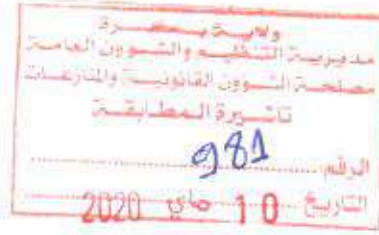 ولاية بسكرة
مديرية التنظيم والشؤون العامة
مصلحة الشؤون القانونية والمنازعات
تأشيرة المطابقة
الرقم: 981
التاريخ 10 ماي 2020